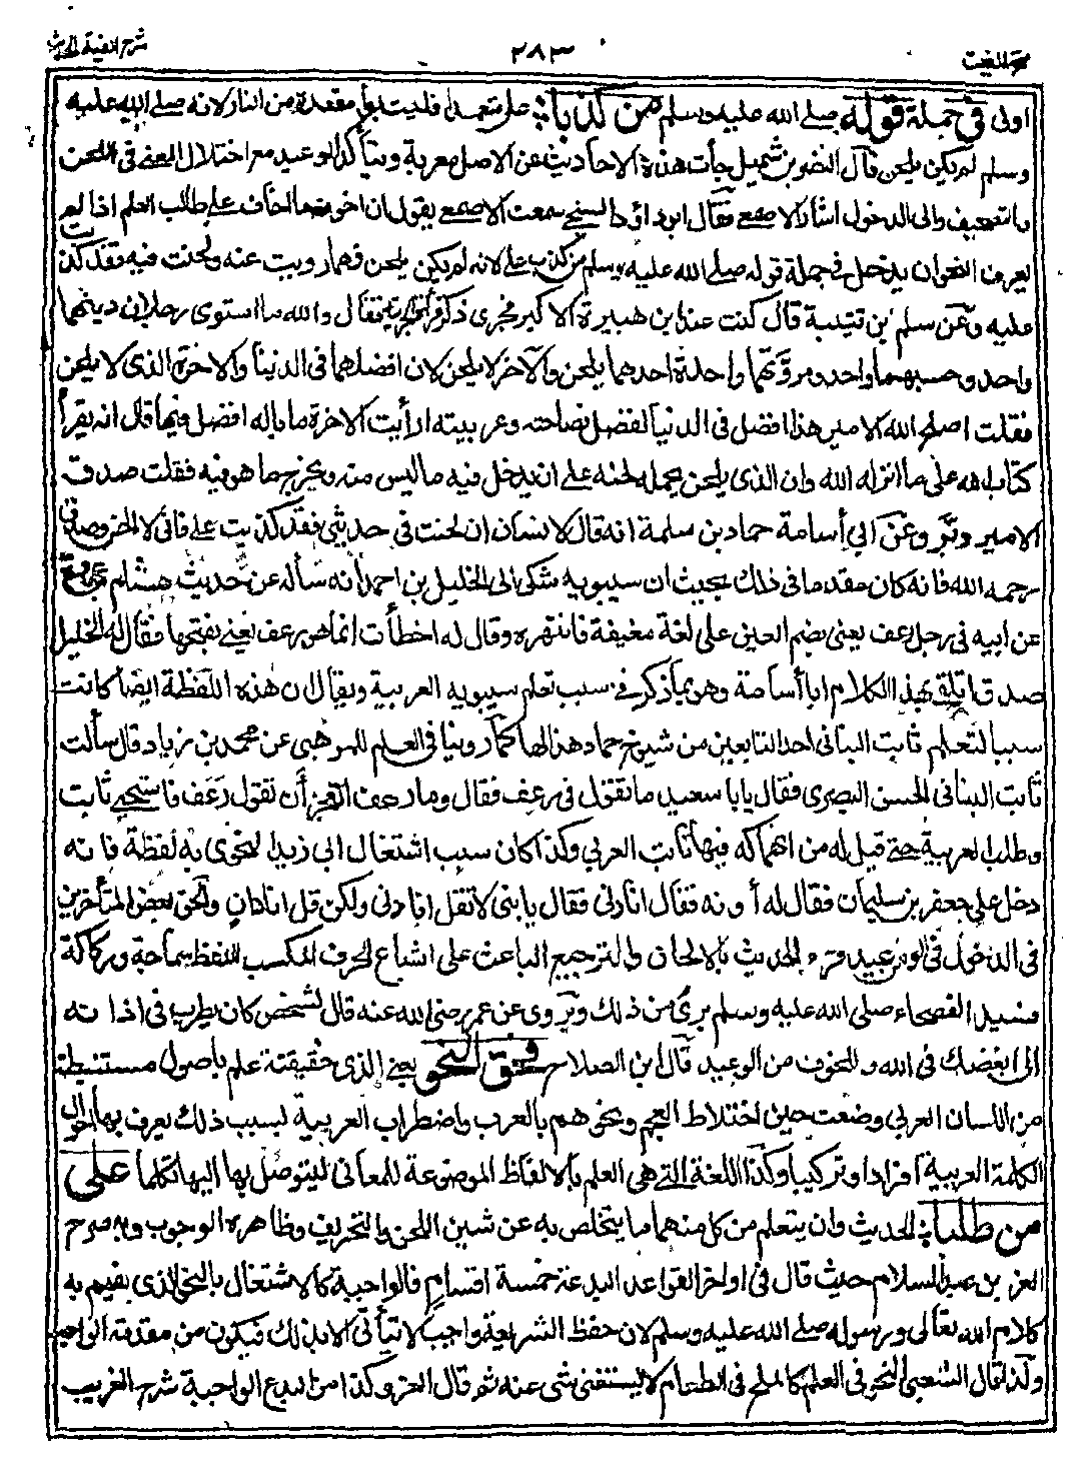 فتح المغيث
٢٨٣
شرح الفية الحديث
اولى في جملة قوله صلى الله عليه وسلم من كذبا على متعمدا فليتبوأ مقعده من النار لانه صلى الله عليه
وسلم لم يكن يلحن قال النضر بن شميل جاءت هذه الاحاديث عن الاصل معربة ويتأكد الوعيد مع اختلال المعنى في اللحن
والتصحيف والى الدخول اشار الاصمعي فقال ابو داؤد السنجي سمعت الاصمعي يقول ان اخوف ما اخاف على طالب العلم اذا لم
يعرف النحو ان يدخل في جملة قوله صلى الله عليه وسلم من كذب على لانه لم يكن يلحن فمهما رويت عنه ولحنت فيه فقد كذبت
عليه وعن سلم بن قتيبة قال كنت عند ابن هبيرة الاكبر فجرى ذكر العربية فقال والله ما استوى رجلان دينهما
واحد وحسبهما واحد ومروتهما واحدة احدهما يلحن والآخر لا يلحن لان افضلهما في الدنيا والاخرة الذي لا يلحن
فقلت اصلح الله الامير هذا افضل في الدنيا لفضل فصاحته وعربيته ارأيت الاخرة ما باله افضل فيها قال انه يقرأ
كتاب الله على ما انزله الله وان الذي يلحن يحمله لحنه على ان يدخل فيه ما ليس منه ويخرج ما هو فيه فقلت صدق
الامير وبر وعن ابي أسامة حماد بن سلمة انه قال لانسان ان لحنت في حديثي فقد كذبت على فاني لا الحن وصدق
رحمه الله فانه كان مقدما في ذلك بحيث ان سيبويه شكى الى الخليل بن احمد انه سأله عن حديث هشام بن عروة
عن ابيه في رجل رعف يعنى بضم العين على لغة ضعيفة فانتهره وقال له اخطأت انما هو رعف يعني بفتحها فقال له الخليل
صدق اتلقى بهذا الكلام ابا أسامة وهو مما ذكر في سبب تعلم سيبويه العربية ويقال ان هذه اللفظة ايضا كانت
سببا لتعلم ثابت البناني احد التابعين من شيوخ حماد هذا لها كما روينا في العلم للموهبي عن محمد بن زياد قال سألت
ثابت البناني الحسن البصري فقال يابا سعيد ما تقول في رعف فقال وما رعف اتعجز أن تقول رعف فاستحيى ثابت
وطلب العربية حتى قيل له من انهماكه فيها ثابت العربي وكذا كان سبب اشتغال ابي زيد النحوي به لفظة فانه
دخل على جعفر بن سليمان فقال له أدنه فقال انا دني فقال يا بني لا تقل انا دني ولكن قل انا دان والحق بعض المتأخرين
في الدخول في الوعيد من قرء الحديث بالالحان والترجيع الباعث على اشباع الحرف المكسب اللفظ سماجة وركاكة
فسيد الفصحاء صلى الله عليه وسلم برئ من ذلك ويروى عن عمر رضى الله عنه قال لشخص كان يطرب في اذانه
اني ابغضك في الله وللخوف من الوعيد قال ابن الصلاح فحق النحو يعني الذي حقيقته علم باصول مستنبطة
من اللسان العربي وضعت حين اختلاط العجم ونحوهم بالعرب واضطراب العربية بسبب ذلك يعرف بها احوال
الكلمة العربية افرادا وتركيبا وكذا اللغة التي هي العلم بالالفاظ الموضوعة للمعاني ليتوصل بها اليها تكلما على
من طلبا الحديث وان يتعلم من كل منهما ما يتخلص به عن شين اللحن والتحريف وظاهره الوجوب وبه صرح
العز بن عبد السلام حيث قال في اواخر القواعد البدعة خمسة اقسام فالواجبة كالاشتغال بالنحو الذي يفهم به
كلام الله تعالى ورسوله صلى الله عليه وسلم لان حفظ الشريعة واجب لا يتأتى الا بذلك فيكون من مقدمة الواجب
ولذا قال الشعبي النحو في العلم كالملح في الطعام لا يستغنى شئ عنه ثم قال العز وكذا من البدع الواجبة شرح الغريب